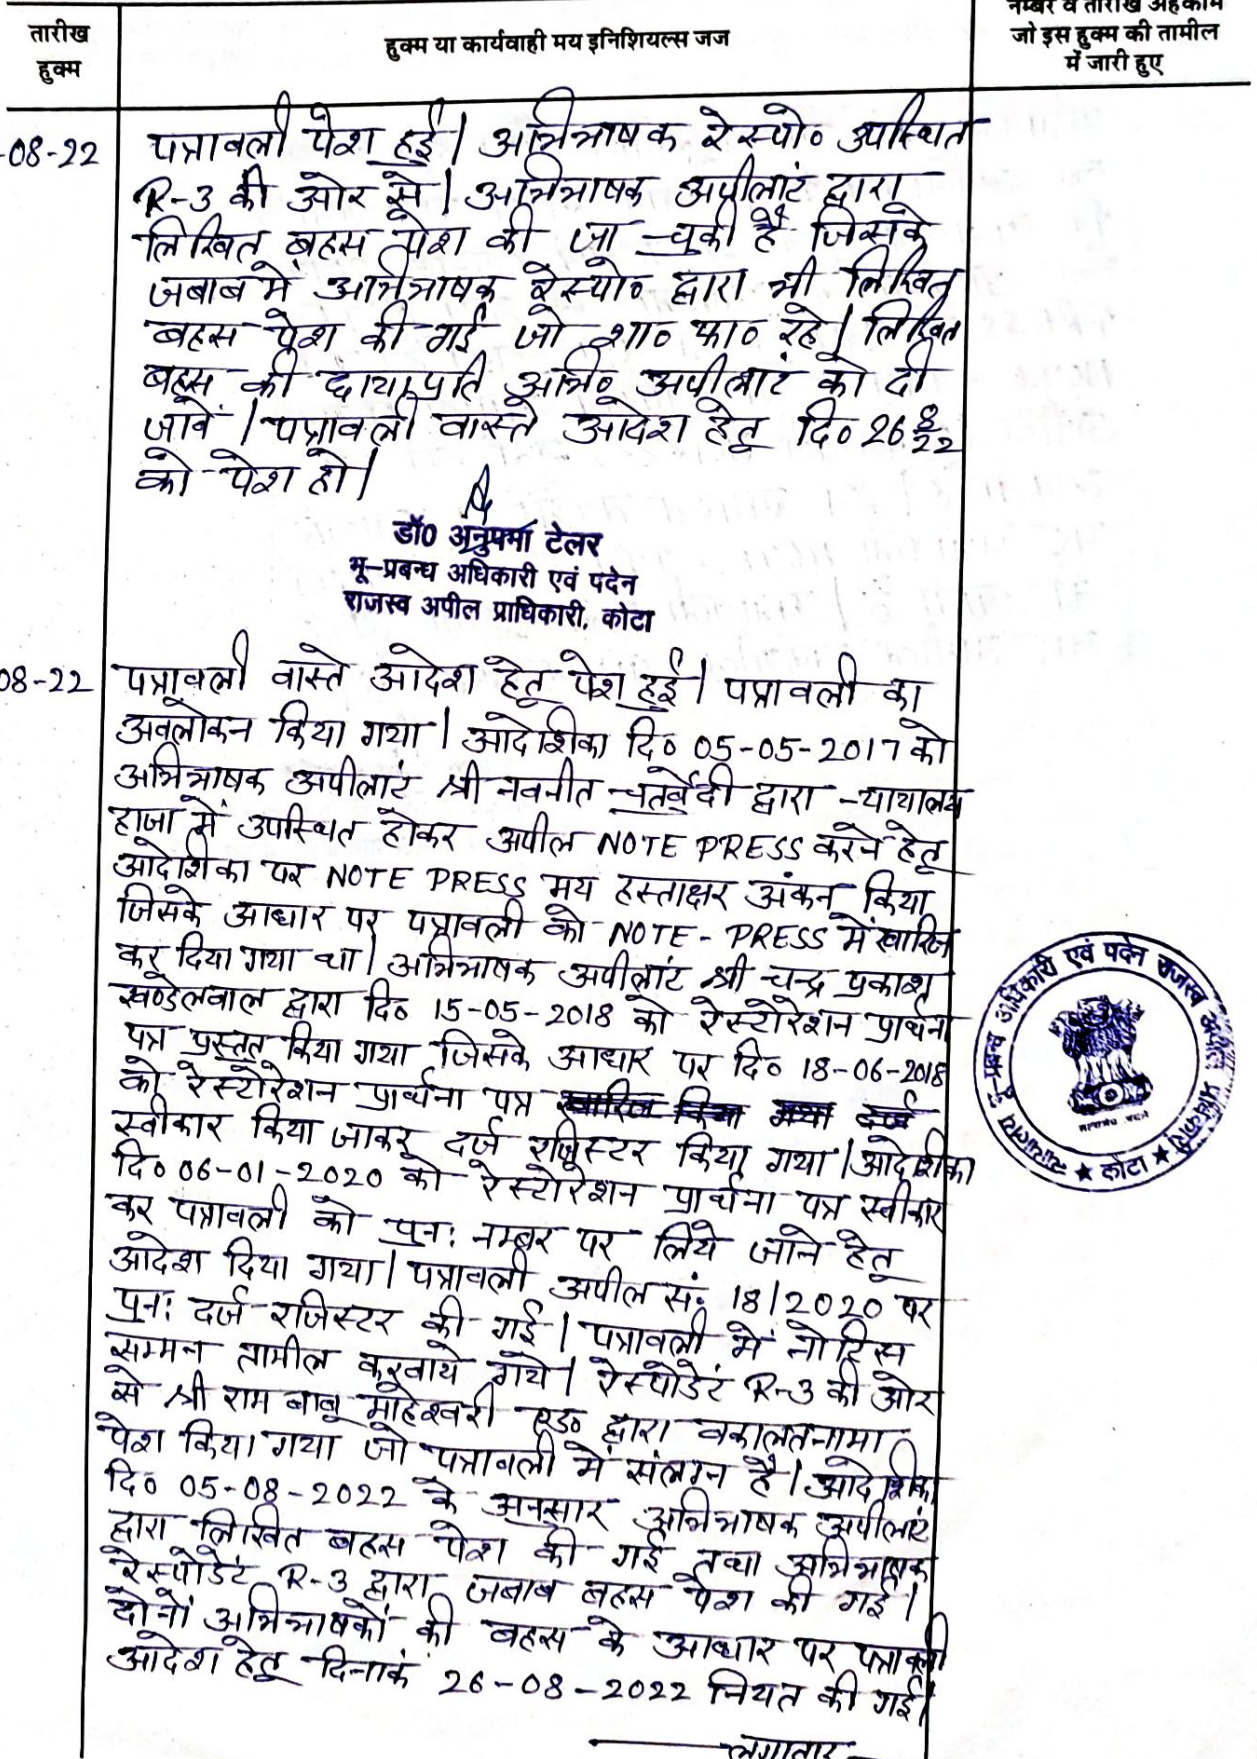 तारीख
हुक्म
हुक्म या कार्यवाही मय इनिशियल्स जज
नम्बर व तारीख अहकाम
जो इस हुक्म की तामील
में जारी हुए
-08-22
पत्रावली पेश हुई। अभिभाषक रेस्पो० उपस्थित
R-3 की ओर से। अभिभाषक अपीलांट द्वारा
लिखित बहस पेश की जा चुकी है जिसके
जबाब में अभिभाषक रेस्पो० द्वारा भी लिखित
बहस पेश की गई जो शा० फा० रहे। लिखित
बहस की छायाप्रति अभि० अपीलांट को दी
जावें। पत्रावली वास्ते आदेश हेतू दि० 26 8/22
को पेश हो।
डॉ0 अनुपमा टेलर
भू-प्रबन्ध अधिकारी एवं पदेन
राजस्व अपील प्राधिकारी, कोटा
08-22
पत्रावली वास्ते आदेश हेतू पेश हुई। पत्रावली का
अवलोकन किया गया। आदेशिका दि० 05-05-2017 को
अभिभाषक अपीलांट श्री नवनीत चतुर्वेदी द्वारा न्यायालय
हाजा में उपस्थित होकर अपील NOTE PRESS करने हेतू
आदेशिका पर NOTE PRESS मय हस्ताक्षर अंकन किया
जिसके आधार पर पत्रावली को NOTE-PRESS में खारिज
कर दिया गया था। अभिभाषक अपीलांट श्री चन्द्र प्रकाश
खण्डेलवाल द्वारा दि० 15-05-2018 को रेस्टोरेशन प्रार्थना
पत्र प्रस्तुत किया गया जिसके आधार पर दि० 18-06-2018
को रेस्टोरेशन प्रार्थना पत्र खारिज किया गया दर्ज
स्वीकार किया जाकर दर्ज रजिस्टर किया गया। आदेशिका
दि० 06-01-2020 को रेस्टोरेशन प्रार्थना पत्र स्वीकार
कर पत्रावली को पुन: नम्बर पर लिये जाने हेतू
आदेश दिया गया। पत्रावली अपील सं. 18/2020 पर
पुन: दर्ज रजिस्टर की गई। पत्रावली में नोटिस
सम्मन तामील करवाये गये। रेस्पोडेंट R-3 की ओर
से श्री राम बाबू माहेश्वरी एड० द्वारा वकालतनामा
पेश किया गया जो पत्रावली में संलग्न है। आदेशिका
दि० 05-08-2022 के अनुसार अभिभाषक अपीलांट
द्वारा लिखित बहस पेश की गई तथा अभिभाषक
रेस्पोडेंट R-3 द्वारा जबाब बहस पेश की गई।
दोनों अभिभाषकों की बहस के आधार पर पत्रावली
आदेश हेतू दिनाकं 26-08-2022 नियत की गई।
लगातार
न्यायालय भू-प्रबन्ध अधिकारी एवं पदेन राजस्व अपील प्राधिकारी
★ कोटा ★
सत्यमेव जयते